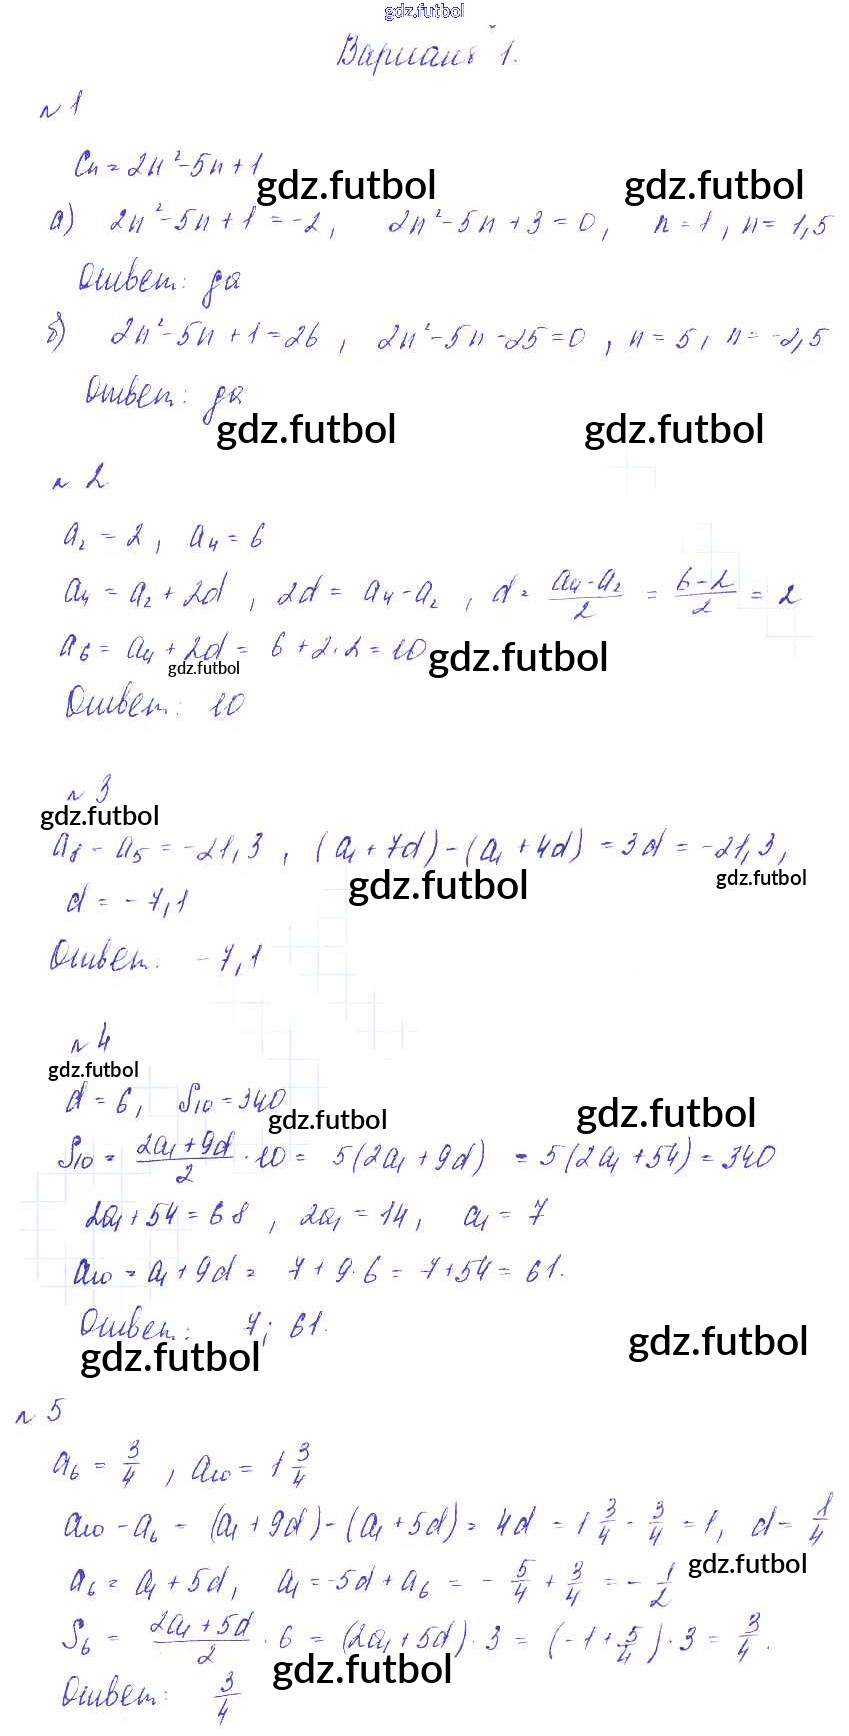 gdz.futbol
Вариант 1.
№ 1
Cn = 2n² - 5n + 1
gdz.futbol gdz.futbol
а) 2n² - 5n + 1 = -2, 2n² - 5n + 3 = 0, n = 1, n = 1,5
Ответ: да
б) 2n² - 5n + 1 = 26, 2n² - 5n - 25 = 0, n = 5, n = -2,5
Ответ: да
gdz.futbol gdz.futbol
№ 2
a₂ = 2, a₄ = 6
a₄ = a₂ + 2d, 2d = a₄ - a₂, d = (a₄ - a₂)/2 = (6 - 2)/2 = 2
a₆ = a₄ + 2d = 6 + 2·2 = 10 gdz.futbol
gdz.futbol
Ответ: 10
№ 3
gdz.futbol
a₈ - a₅ = -21,3, (a₁ + 7d) - (a₁ + 4d) = 3d = -21,3,
gdz.futbol gdz.futbol
d = -7,1
Ответ: -7,1
№ 4
gdz.futbol
d = 6, S₁₀ = 340
gdz.futbol gdz.futbol
S₁₀ = (2a₁ + 9d)/2 · 10 = 5(2a₁ + 9d) = 5(2a₁ + 54) = 340
2a₁ + 54 = 68, 2a₁ = 14, a₁ = 7
a₁₀ = a₁ + 9d = 7 + 9·6 = 7 + 54 = 61.
Ответ: 7; 61.
gdz.futbol gdz.futbol
№ 5
a₆ = 3/4, a₁₀ = 1 3/4
a₁₀ - a₆ = (a₁ + 9d) - (a₁ + 5d) = 4d = 1 3/4 - 3/4 = 1, d = 1/4
gdz.futbol
a₆ = a₁ + 5d, a₁ = -5d + a₆ = -5/4 + 3/4 = -1/2
S₆ = (2a₁ + 5d)/2 · 6 = (2a₁ + 5d) · 3 = (-1 + 5/4) · 3 = 3/4.
gdz.futbol
Ответ: 3/4